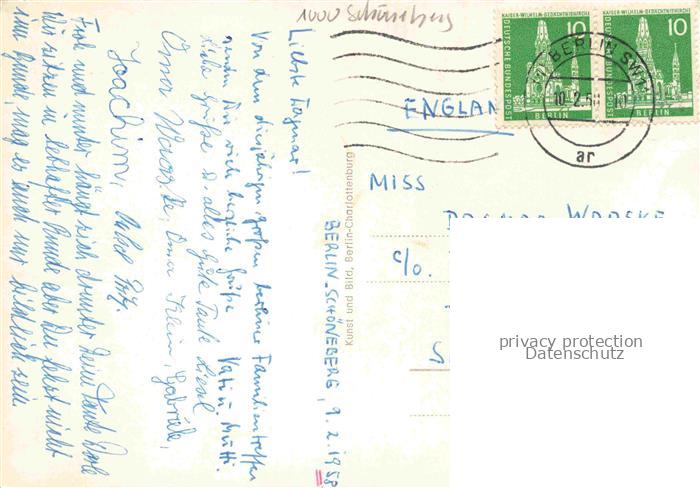 1000 Schöneberg
KAISER-WILHELM-GEDÄCHTNISKIRCHE
10
DEUTSCHE BUNDESPOST
BERLIN
KAISER-WILHELM-GEDÄCHTNISKIRCHE
10
DEUTSCHE BUNDESPOST
BERLIN
BERLIN SW
10.2.58
ar
ENGLAN
MISS
DAGMAR WARSKE
c/o.
privacy protection
Datenschutz
Kunst und Bild, Berlin-Charlottenburg
BERLIN-SCHÖNEBERG, 9.2.1958
Liebste Dagmar!
Von dem diesjährigen großen Berliner Familientreffen
senden Dir viele herzliche Grüße Vati u. Mutti.
Liebe Grüße u. alles Gute Tante Liesel
Oma Oma Klein, Gabriele,
Joachim, Onkel
Froh und munter hängt sich drunter Deine Tante
Wir sitzen in lebhafter Runde aber Du fehlst nicht
eine Stunde, mag es auch nur bildlich sein